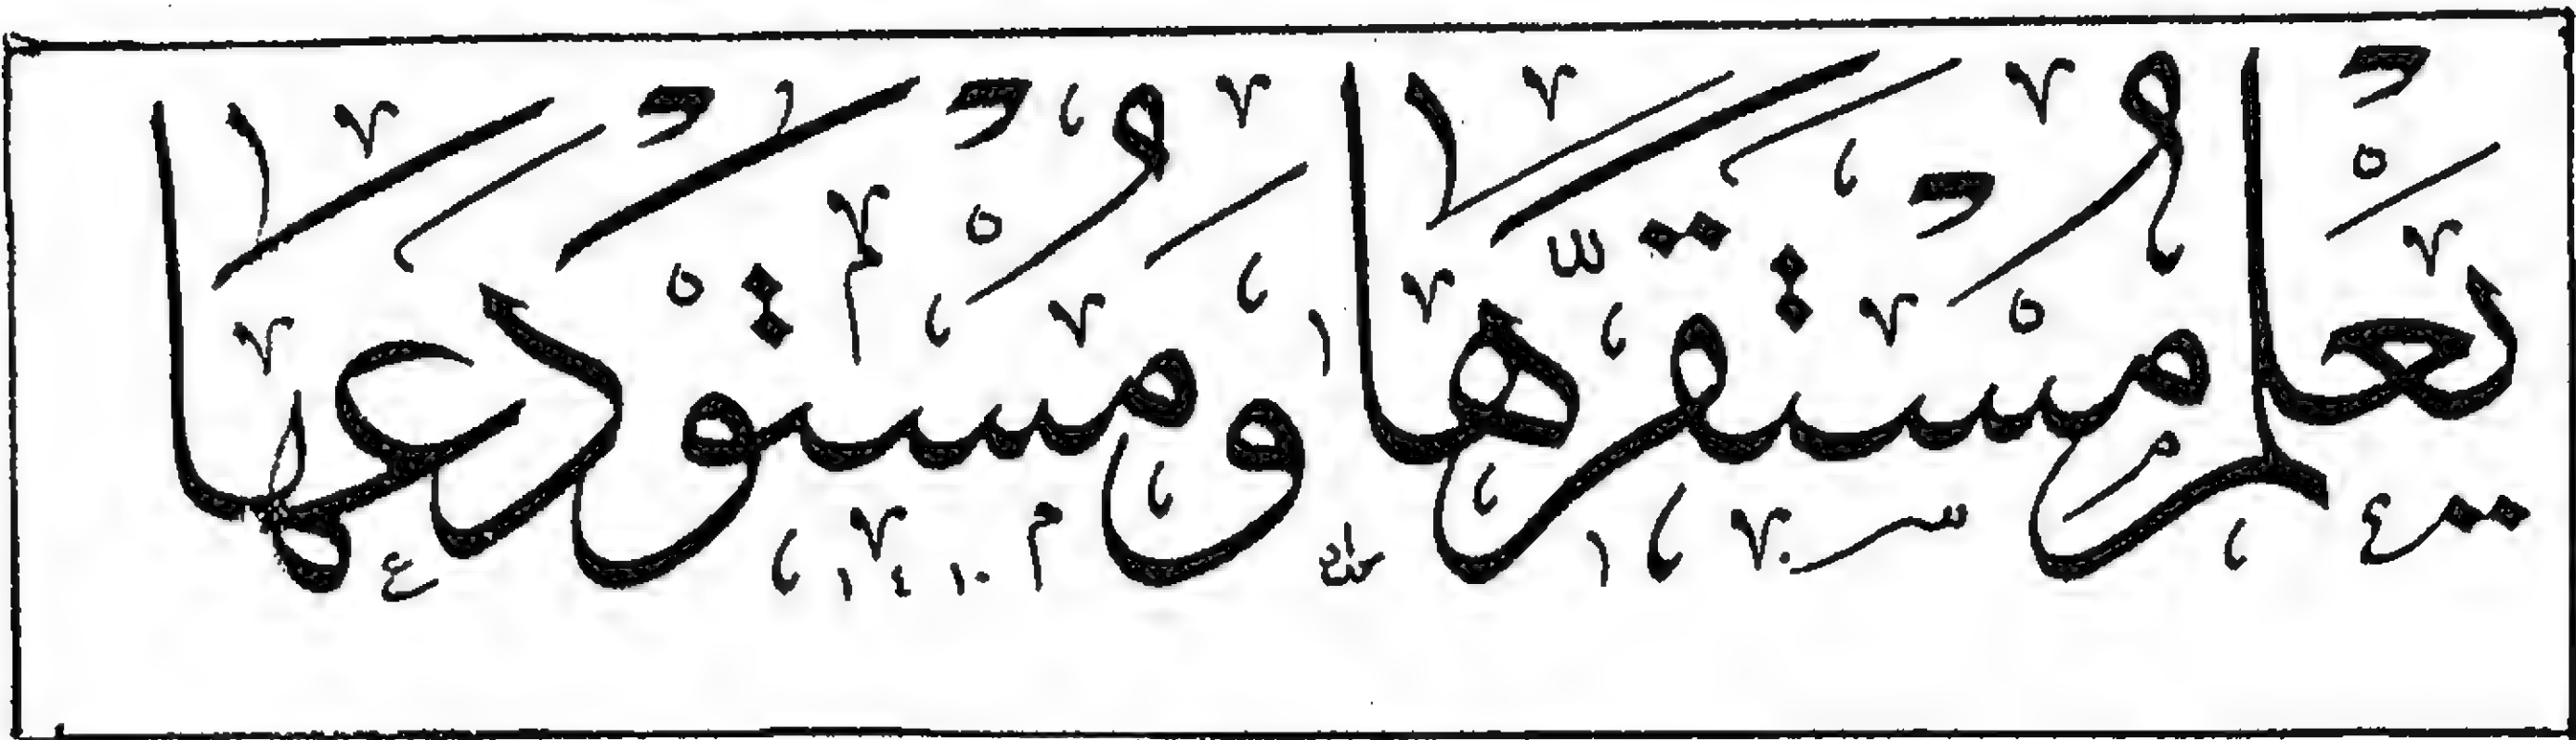 يَعْلَمُ مُسْتَقَرَّهَا وَمُسْتَوْدَعَهَا
١٤١٠